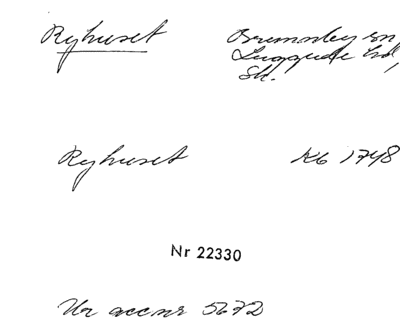 Ryhuset Brunnby sn,
Luggude hd,
Sk.
Ryhuset Kb 1748
Nr 22330
Ur accnr 5672